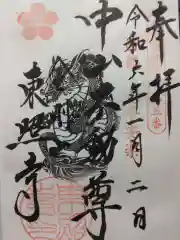 奉拝
令和六年一月二日
中山不動尊
東照寺